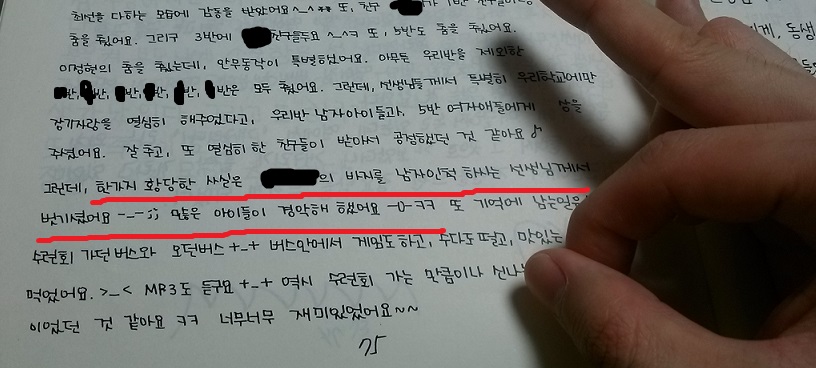 최선을 다하는 모습에 감동을 받았어요^_^** 또, 친구
춤을 췄어요. 그리구 3반에 친구들두요 ^_^ㅋ 또, 5반도 춤을 췄어요.
이정현의 춤을 췄는데, 안무동작이 특별하었어요. 아무튼 우리반을 제외한
반, 반, 반, 반, 반, 반은 모두 췄어요. 그런데, 선생님들께서 특별히 우리학교에만
장기자랑을 열심히 해주었다고, 우리반 남자아이들과, 5반 여자애들에게 상을
주셨어요. 잘 추고, 또 열심히 한 친구들이 받아서 공정했던 것 같아요♪
그런데, 한가지 황당한 사실은 의 바지를 남자인척 하시는 선생님께서
벗기셨어요 -_-;; 많은 아이들이 경악해 했어요 -0-ㅋㅋ 또 기억에 남는일은
수련회 가던버스와 오던버스 +_+ 버스안에서 게임도하고, 수다도 떨고, 맛있는
먹었어요. >_< MP3도 듣구요 +_+ 역시 수련회 가는 만큼이나 신나는
이었던 것 같아요 ㅋㅋ 너무너무 재미있었어요~~
75